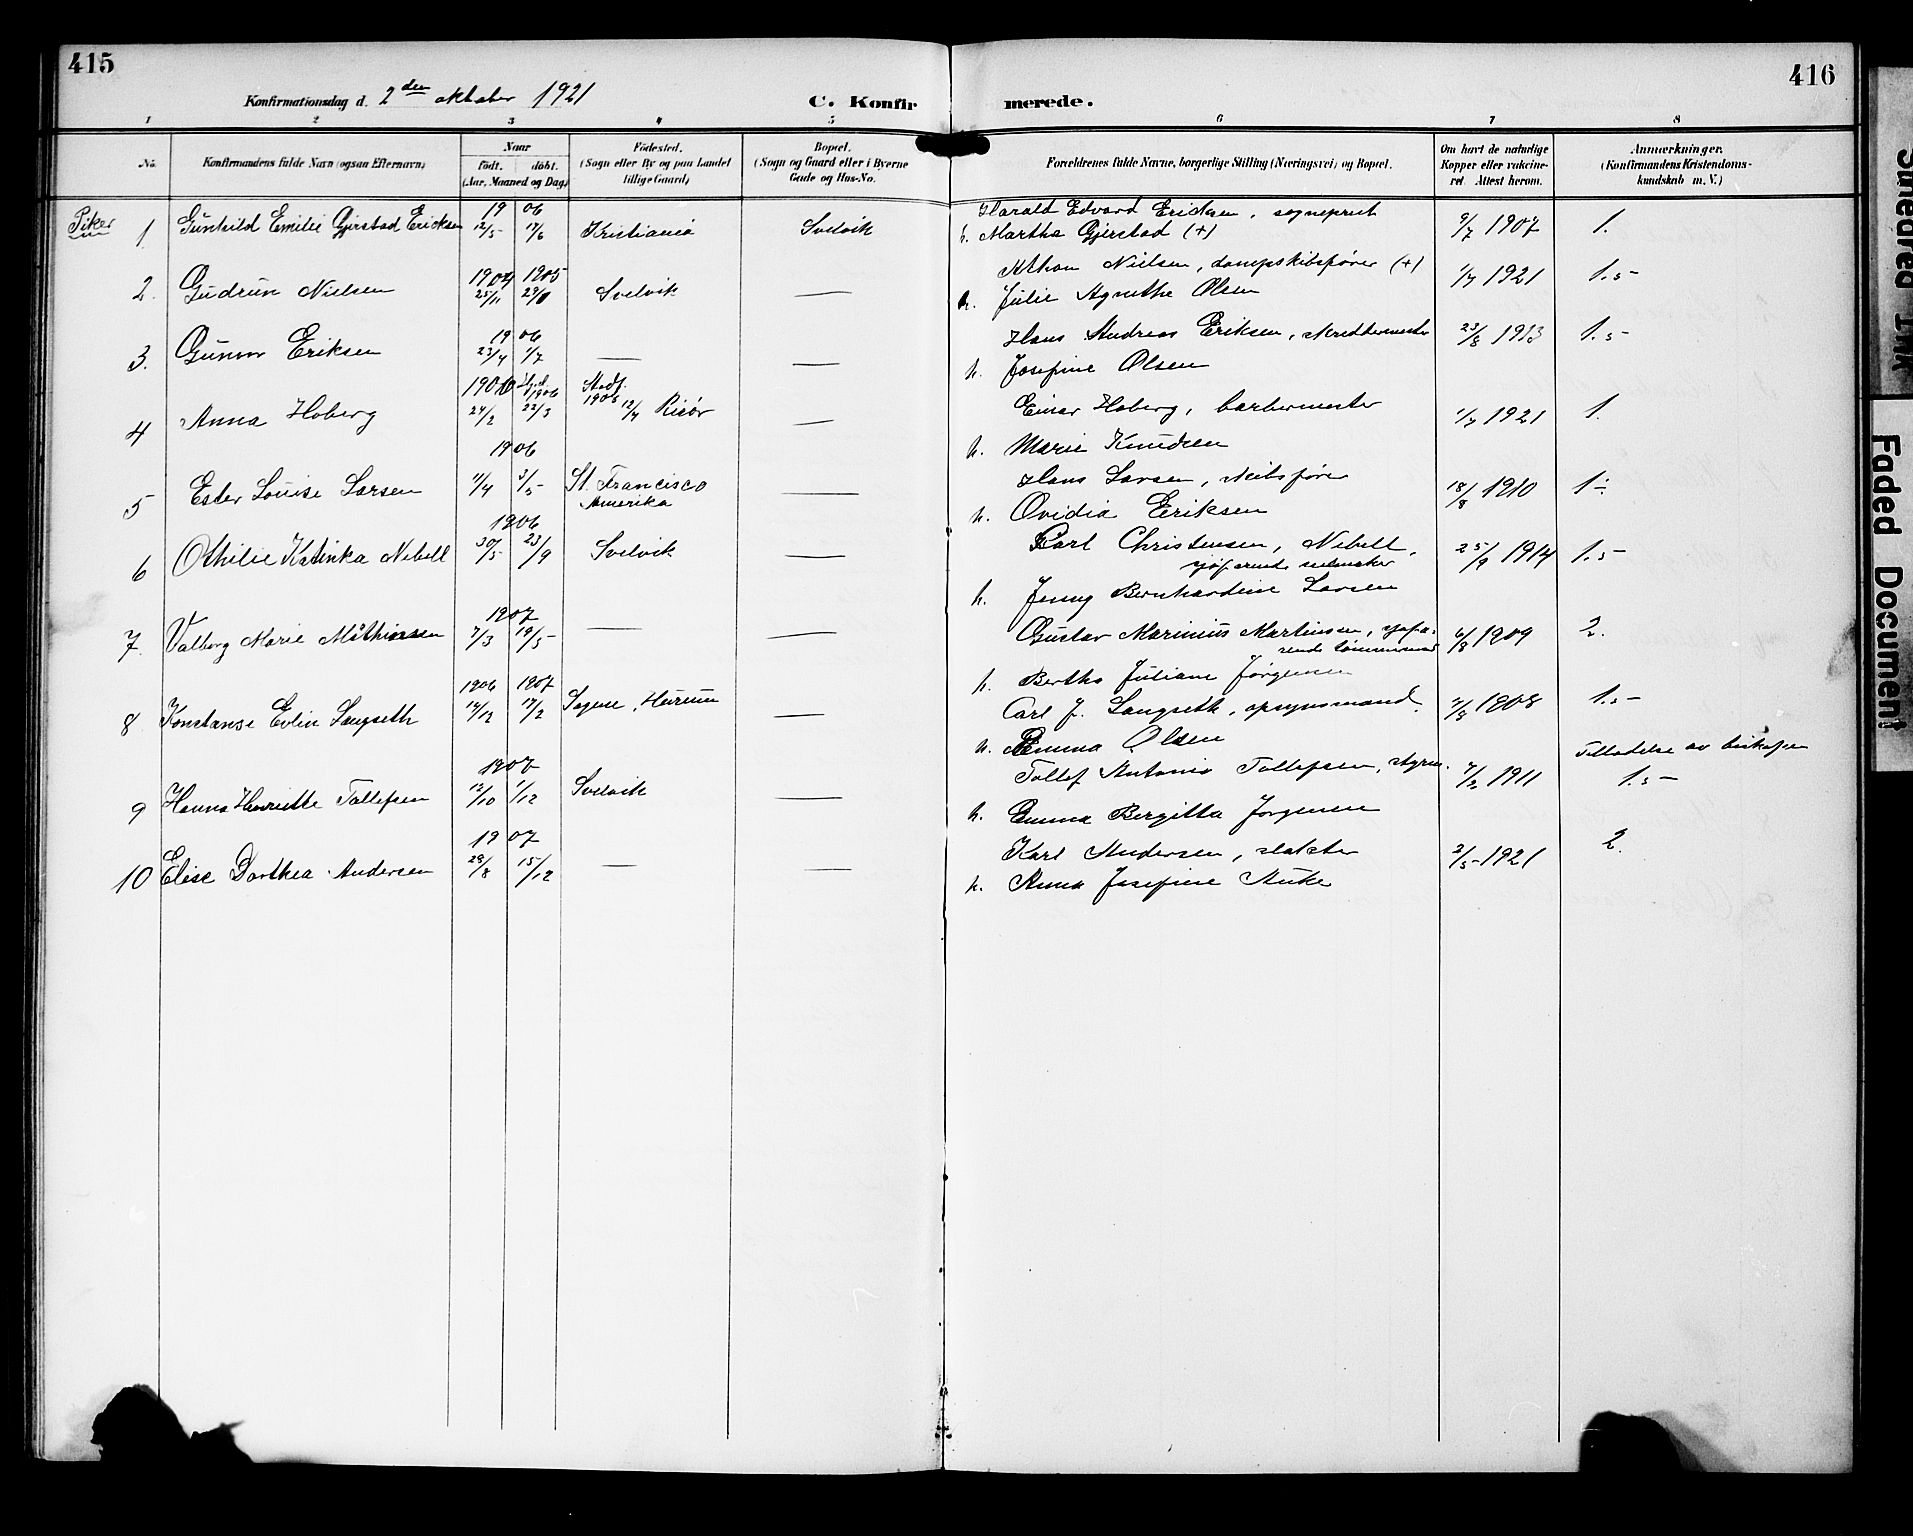 415
416
Konfirmationsdag d. 2den oktober 1921
C. Konfirmerede.
1 2 3 4 5 6 7 8
No. Konfirmandens fulde Navn (ogsaa Efternavn) Naar født. døbt. (Aar, Maaned og Dag) Fødested. (Sogn eller By og paa Landet tillige Gaard) Bopæl. (Sogn og Gaard eller i Byerne Gade og Hus-No. Forældrenes fulde Navne, borgerlige Stilling (Næringsvei) og Bopæl. Om havt de naturlige Kopper eller vaccineret. Attest herom. Anmærkninger. (Konfirmandens Kristendomskundskab m. V.)
Piker
1. Gunhild Emilie Gjerstad Ericksen 1906 12/5 17/6 Kristiania Svelvik Harald Edvard Ericksen, sogneprest 9/7 1907 1.
h. Martha Gjerstad (+)
2. Gudrun Nielsen 1904 25/11 1905 Svelvik — Nielsen, dampskibsfører (+) 1/7 1921 1.5
h. Julie Agnethe Olsen
3. Gunvor Eriksen 1906 23/4 1/7 — — Hans Andreas Eriksen, skreddermester 23/8 1913 1.5
h. Josefine Olsen
4 Anna Hoberg 24/2 1906 22/3 Stadf. 1906 12/4 Risør — Einar Hoberg, barbermester 1/7 1921 1.
h. Marie Knudsen
5 Ester Louise Larsen 1906 11/4 3/5 St. Francisco Amerika — Hans Larsen, skibsfører 18/8 1910 1÷
h. Ovidia Eriksen
6 Othilie Katinka Nebell 1906 30/5 23/9 Svelvik — Carl Christensen, Nebell, 25/9 1914 1.5
sjøfarende
h. Jenny Bernhardine Larsen
7. Valborg Marie Mathinsen 1907 7/3 19/5 — — Gustav Marinius Martinsen, sjøfarende tømmermand 6/8 1909 2.
h. Bertha Juliane Jørgensen
8 Konstanse Evlin Langseth 1906 14/12 1907 17/2 Sagene, Hurum — Carl J. Langseth, opsynsmand. 1908 1.5
h. Emma Olsen
9 Hanna Henriette Tollefsen 1907 12/10 1/12 Svelvik — Tollef Antonio Tollefsen, styrm. 7/2 1911 Tilladelse av biskopen 1.5
h. Emma Bergitta Jørgensen
10 Elise Dorthea Andersen 1907 29/8 15/12 — — Karl Andersen, slakter 2/5 1921 2.
h. Anna Josefine Auke
Skjemmet Link
Faded Document